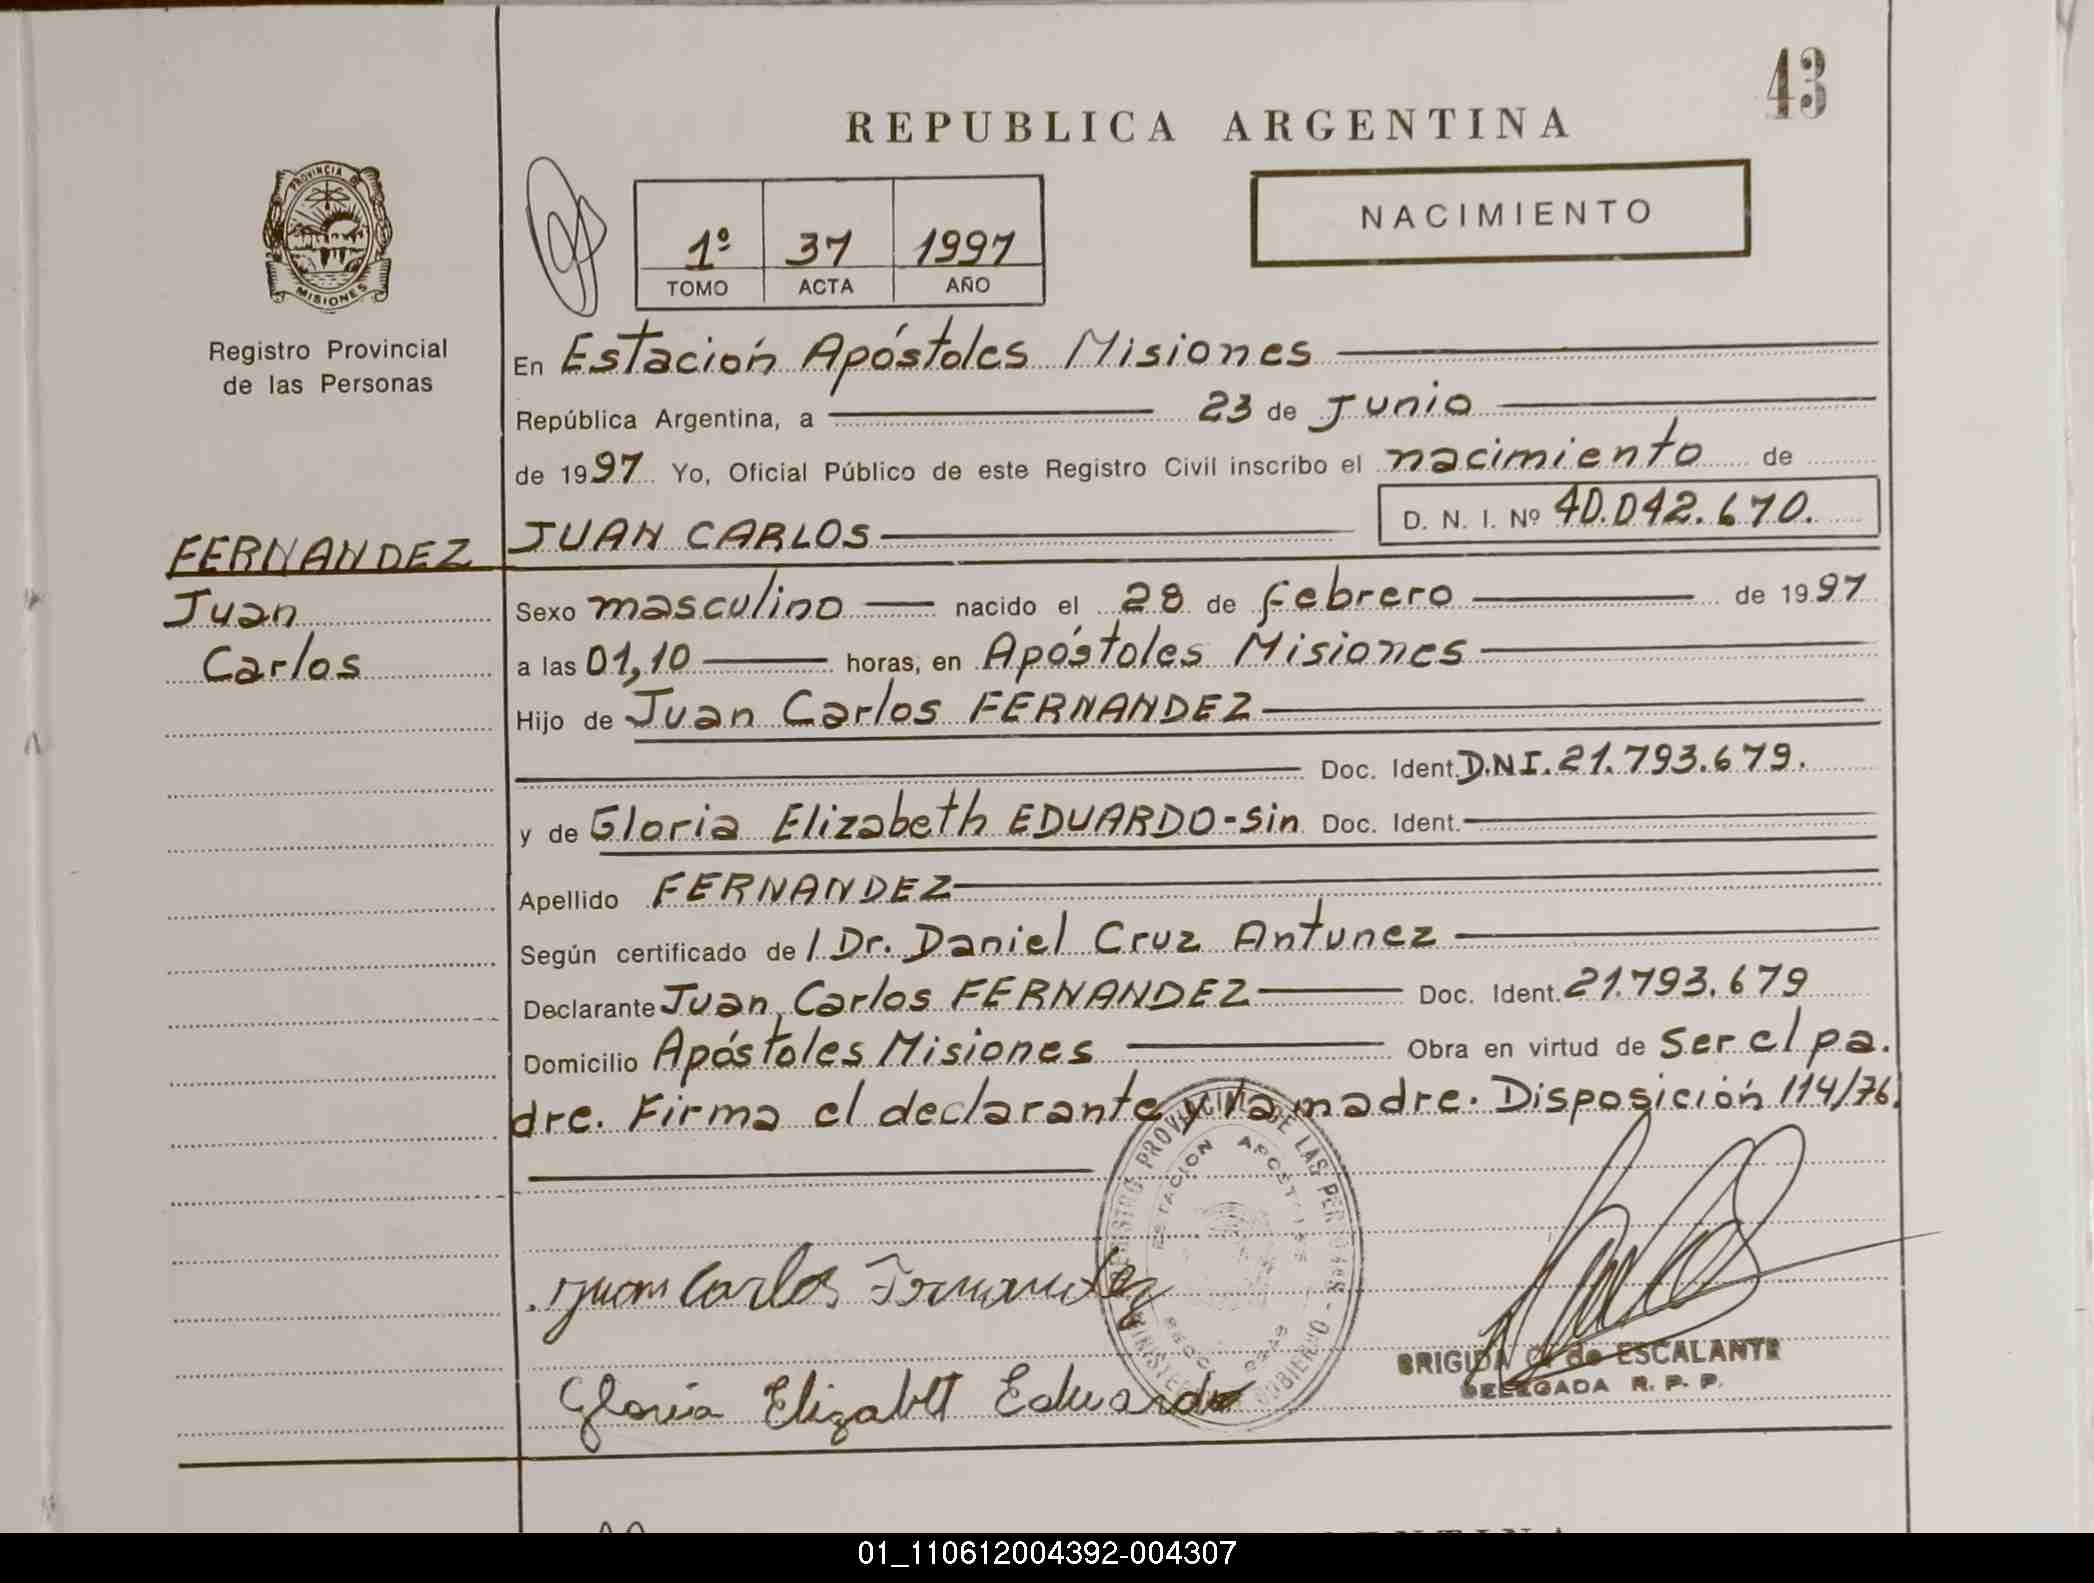 43
REPUBLICA ARGENTINA
PROVINCIA DE
MISIONES
Registro Provincial
de las Personas
1º 37 1997
TOMO ACTA AÑO
NACIMIENTO
En Estación Apóstoles Misiones
República Argentina, a 23 de Junio
de 1997 Yo, Oficial Público de este Registro Civil inscribo el nacimiento de
D. N. I. Nº 40.042.670.
FERNANDEZ JUAN CARLOS
Juan
Carlos
Sexo masculino nacido el 28 de febrero de 1997
a las 01,10 horas, en Apóstoles Misiones
Hijo de Juan Carlos FERNANDEZ
Doc. Ident. D.N.I. 21.793.679.
y de Gloria Elizabeth EDUARDO-sin Doc. Ident.
Apellido FERNANDEZ
Según certificado de / Dr. Daniel Cruz Antunez
Declarante Juan Carlos FERNANDEZ Doc. Ident. 21.793.679
Domicilio Apóstoles Misiones Obra en virtud de ser el pa.
dre. Firma el declarante y la madre. Disposición 114/76.
REGISTRO PROVINCIAL DE LAS PERSONAS
ESTACION APOSTOLES
Juan Carlos Fernandez
Gloria Elizabet Eduardo
BRIGIDA de ESCALANTE
DELEGADA R. P. P.
01_110612004392-004307